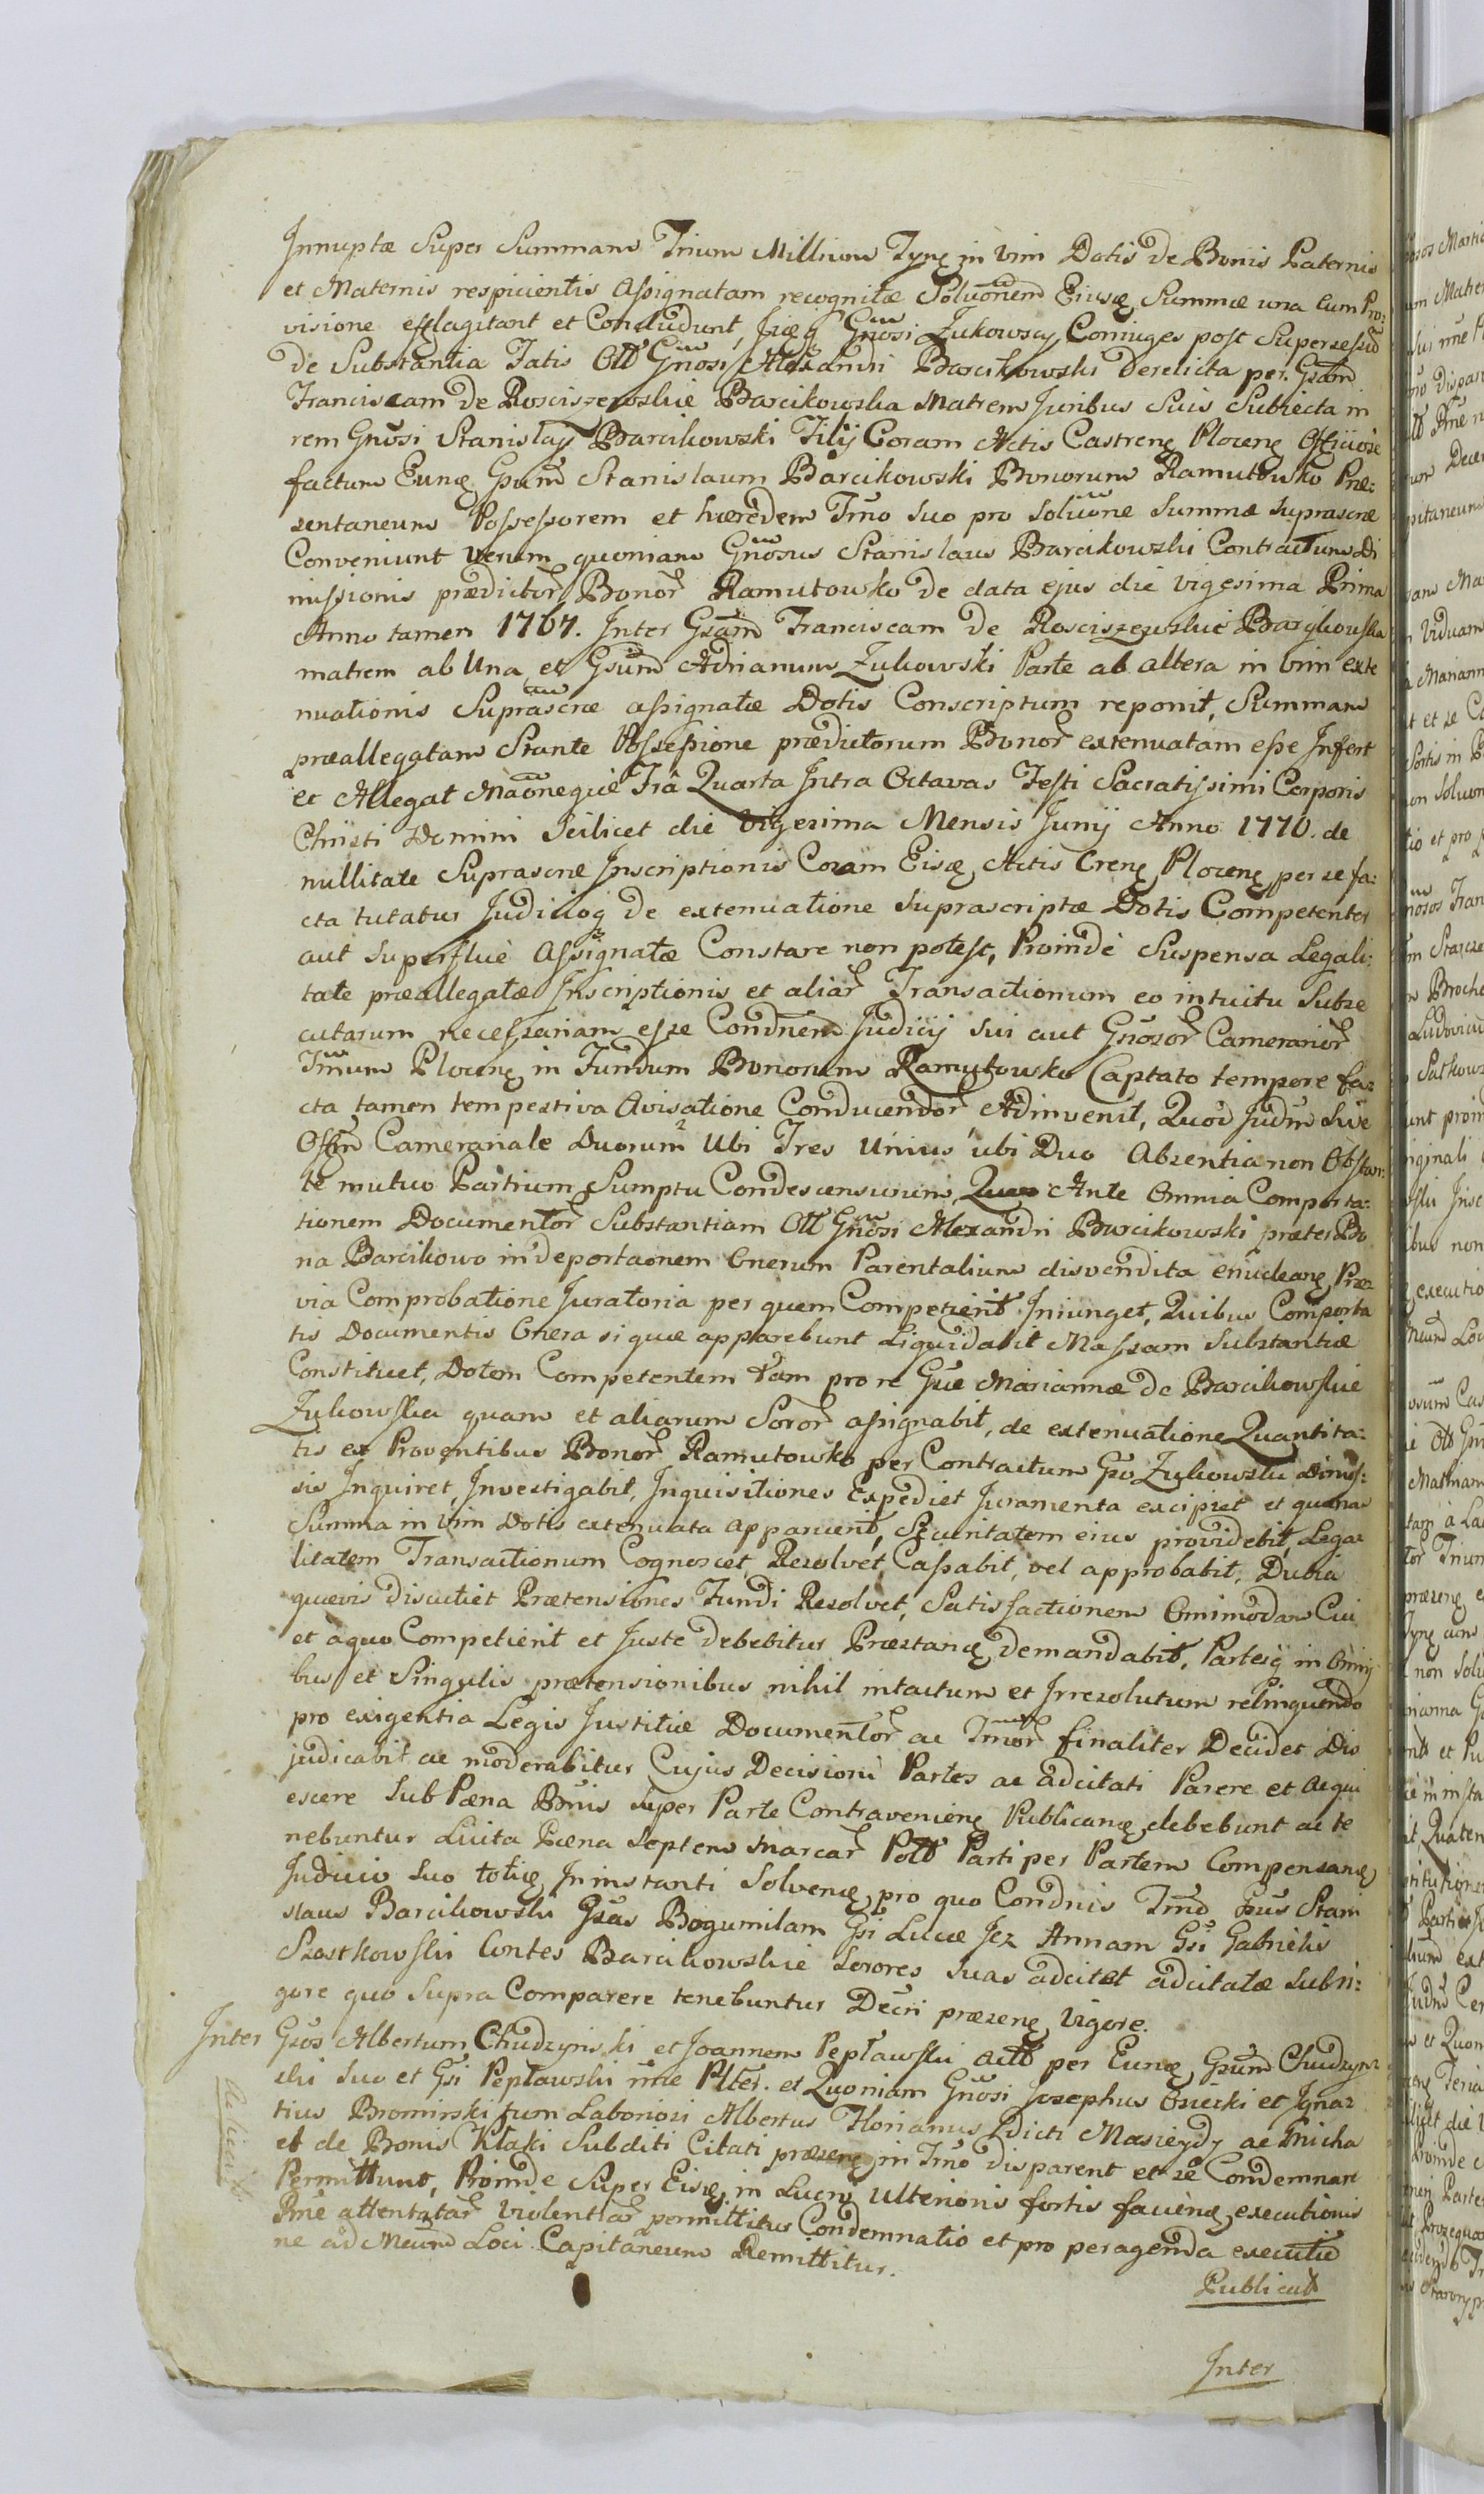 Innuptæ Super Summam Trium Millium Tynę in vim Dotis de Bonis Paternis
et Maternis respicientis Assignatam recognitæ Soluõnem Eiusq Summæ una Cum Pro:
visione efflagitant et Concludunt, Gnõsi Zukowscy Coniuges post
de Substantia Fatis Olt Gnõsi Alexandri Barcikowski derelicta per Gsam
Franciscam de Rosciszewskie Barcikowska Matrem Juribus Suis Subiecta in
rem Gnõsi Stanislay Barcikowski Filij Coram Actis Castrenę Plocenę Officiose
factum Eunę Gsum Stanislaum Barcikowski Bonorum Ramutowko Præ:
sentaneum Possessorem et hæredem Tmo suo pro soluõne Summæ suprascræ
Conveniunt Verum quoniam Gnosus Stanislaus Barcikowski Contractum Di
missionis prædictor Bonor Ramutowko de data ejus die vigesima Prima
Anno tamen 1767. Inter Gsam Franciscam de Rosciszewskie Barcykowska
matrem ab Una et Gsum Adrianum Zukowski Parte ab altera in vim exte
nuationis Suprascræ assignatæ Dotis Conscriptum reponit, Summam
præallegatam Stante Possessione prædictorum Bonor extenuatam esse Infert
et Allegat Maõneque Fria Quarta Intra Octavas Festi Sacratissimi Corporis
Christi Domini Scilicet die Vigesima Mensis Junij Anno 1770. de
nullitate Suprascræ Inscriptionis Coram Eisq Actis Crenę Plocenę per se fa:
cta tutatur Judicioq de extenuatione suprascriptæ Dotis Competenter
aut Superflue Assignatæ Constare non potest, Proinde Suspensa Legali:
tate præallegatæ Inscriptionis et aliar Transactionum eo intuitu Subse
cutarum necessariam esse Condnem Judicij sui aut Gnosor Camerarior
Tmum Plocenę in Fundum Bonorum Ramutowko Captato tempore fa:
cta tamen tempestiva Avisatione Conducendor Adinvenit, Quod Judm Sive
Offm Camerariale Duorum Ubi Tres Unius ubi Duo Absentia non Obstan:
te mutuo Partium Sumptu Condescensurum, Ante Omnia Comporta:
tionem Documentor Substantiam Olt Gnõsi Alexandri Barcikowski præter Bo
na Barcikowo in deportaonem Onerum Parentalium disvendita enucleanę Præ:
via Comprobatione Juratoria per quem Competierit Iniunget, Quibus Comporta
tis Documentis Onera si quæ apparebunt Liquidabit Massam Substantiæ
Constituet, Dotem Competentem tam pro re Gsæ Mariannæ de Barcikowskie
Zukowska quam et aliarum Soror assignabit, de extenuatione Quantita:
tis ex Proventibus Bonor Ramutowko per Contractum Gso Zukowski Dimis:
sis Inquiret, Investigabit, Inquisitiones Expediet Juramenta excipiet et quana
Summa in vim Dotis extenuata apparuerit, Securitatem eius providebit, Lega:
litatem Transactionum Cognoscet, Resolvet, Cassabit, vel approbabit, Dubia
quævis discutiet Prætensiones Fundi Resolvet, Satisfactionem Omnimodam Cui
et aquo Competierit et Juste debebitur Præstanę demandabit, Partesq in Omni
bus et Singulis prætensionibus nihil intactum et Irresolutum relinquendo
pro exigentia Legis Justitiæ Documentor ac Tmor finaliter Decidet Dis
judicabit ac moderabitur Cujus Decisioni Partes ac adcitati Parere et Acqui
escere Sub Pæna Bnis super Parte Contravenienę Publicanę debebunt ac te
nebuntur Luita Pæna Septem Marcar Poll Parti per Partem Compensanę
Judicio suo totiq In instanti Solvenę pro quo Condnis Tmo Gsus Stani
slaus Barcikowski Gsas Bogumilam Gsi Lucæ Jez Annam Gsi Gabrielis
Szostkowski Contes Barcikowskie Sorores suas adcitet adcitatæ sub ri:
gore quo supra Comparere tenebuntur Decri præsenę Vigore.
Inter Gsos Albertum Chudzynski et Joannem Peplawski actt per Eunę Gsum Chudzyn:
ski suo et Gsi Peplawski nne Plter. et Quoniam Gnõsi Josephus et Igna:
tius Brominski tum Laboriosi Albertus Florianus Dicti Masieydy ac Micha
el de Bonis Kłaki Subditi Citati præsenę in Tmo disparent et se Condemnari
Permittunt, Proinde Super Eisq in Lucro Ulterioris fortis favenę executionis
Pme attentatar violentiar permittitur Condemnatio et pro peragenda executio
ne ad Meum Loci Capitaneum Remittitur.
Publicatt
Inter